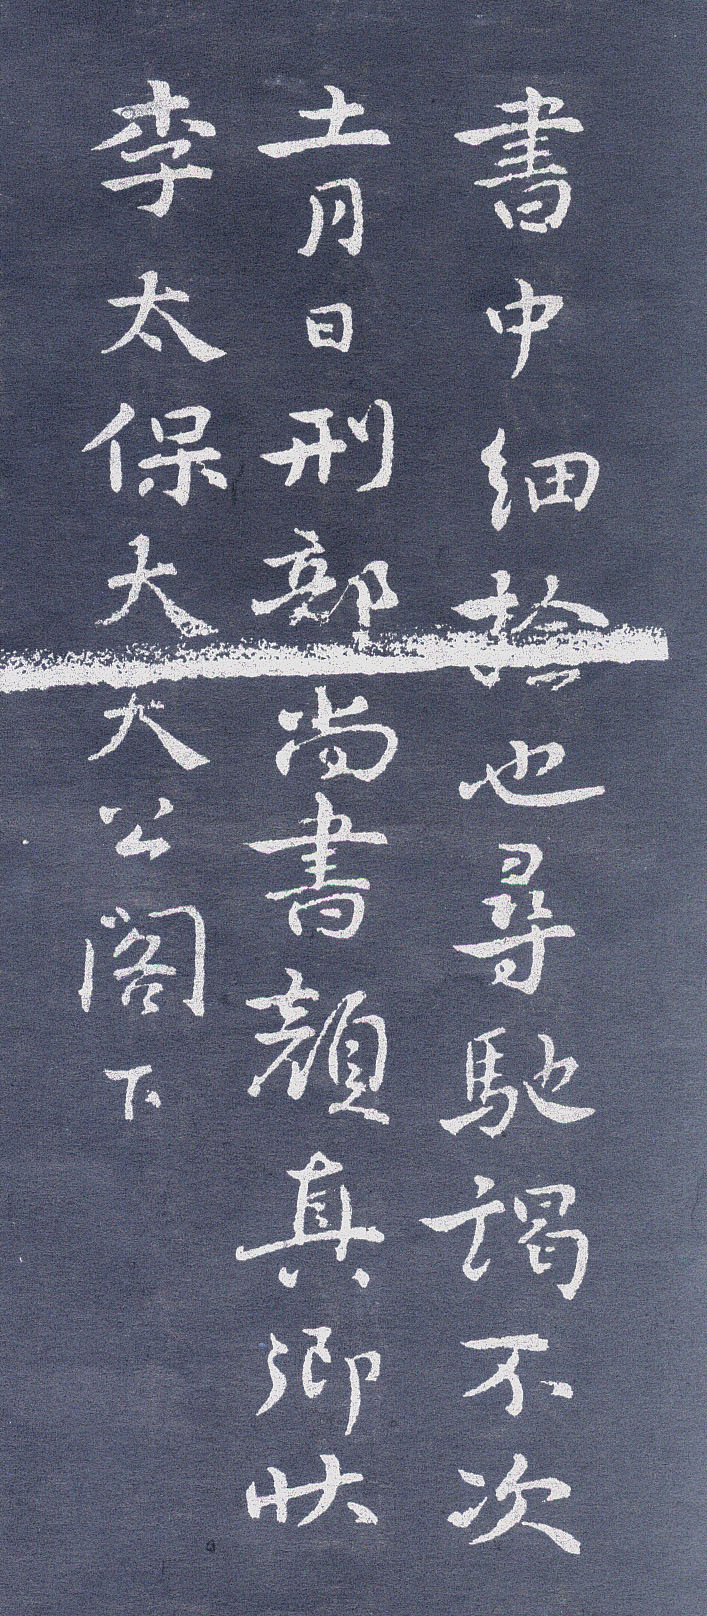 書中細也尋馳謁不次
十一月日刑部尚書顏真卿狀
李太保大夫公閣下